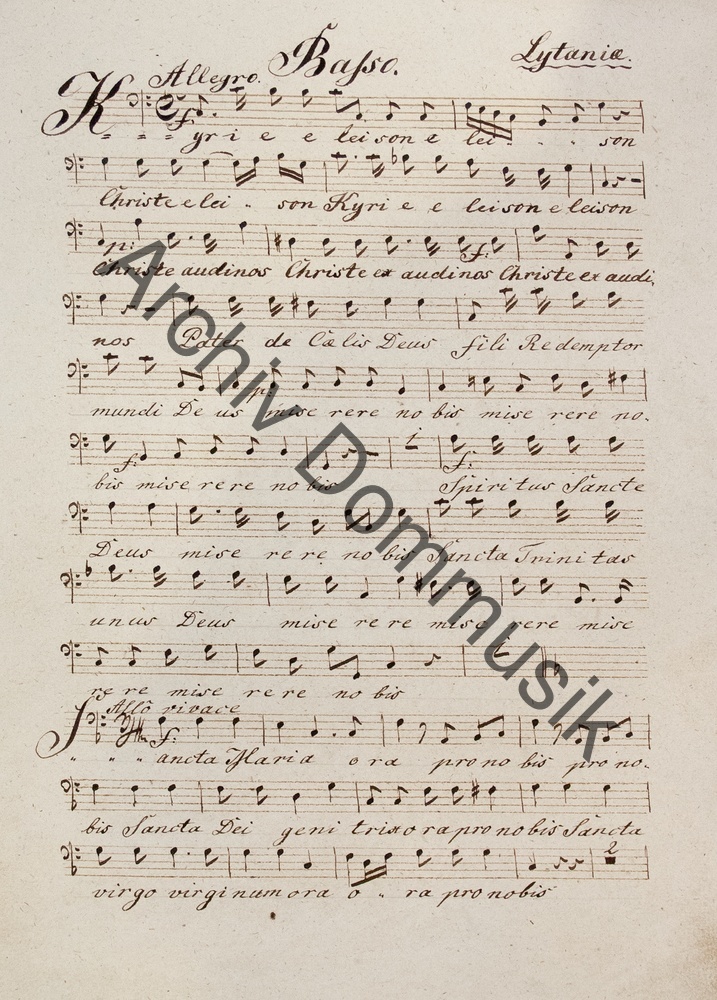 Basso.
Lytaniæ.
Allegro.
f:
K - - - yri e e leison e lei - - - son
Christe elei - son Kyri e e leison eleison
p: f:
Christe audinos Christe ex audinos Christe ex audi.
nos Pater de Cælis Deus fili Redemptor
p:
mundi De us mise rere no bis mise rere no.
f: 1 f:
bis mise re re no bis Spiritus Sancte
Deus mise re re no bis Sancta Trini tas
unus Deus mise re re mise rere mise
re re mise re re no bis
Allo vivace
f:
S " " " ancta Maria o ra pro no bis pro no.
bis Sancta Dei geni trix o ra pro no bis Sancta
2
virgo virginum ora o " ra pro nobis
Archiv Dommusik